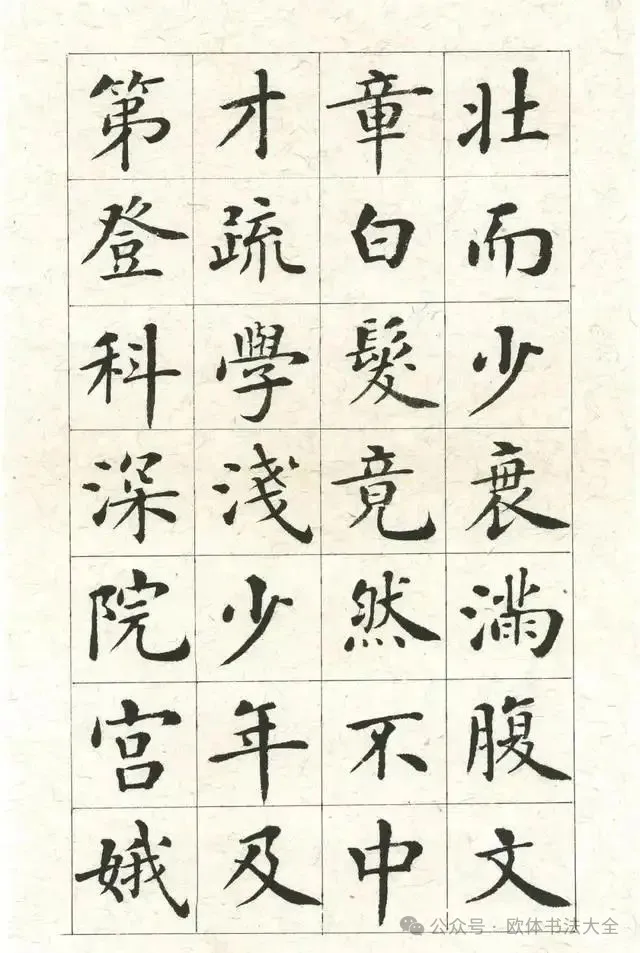 壮而少衰满腹文
章白髮竟然不中
才疏學淺少年及
第登科深院宫娥
公众号·欧体书法大全